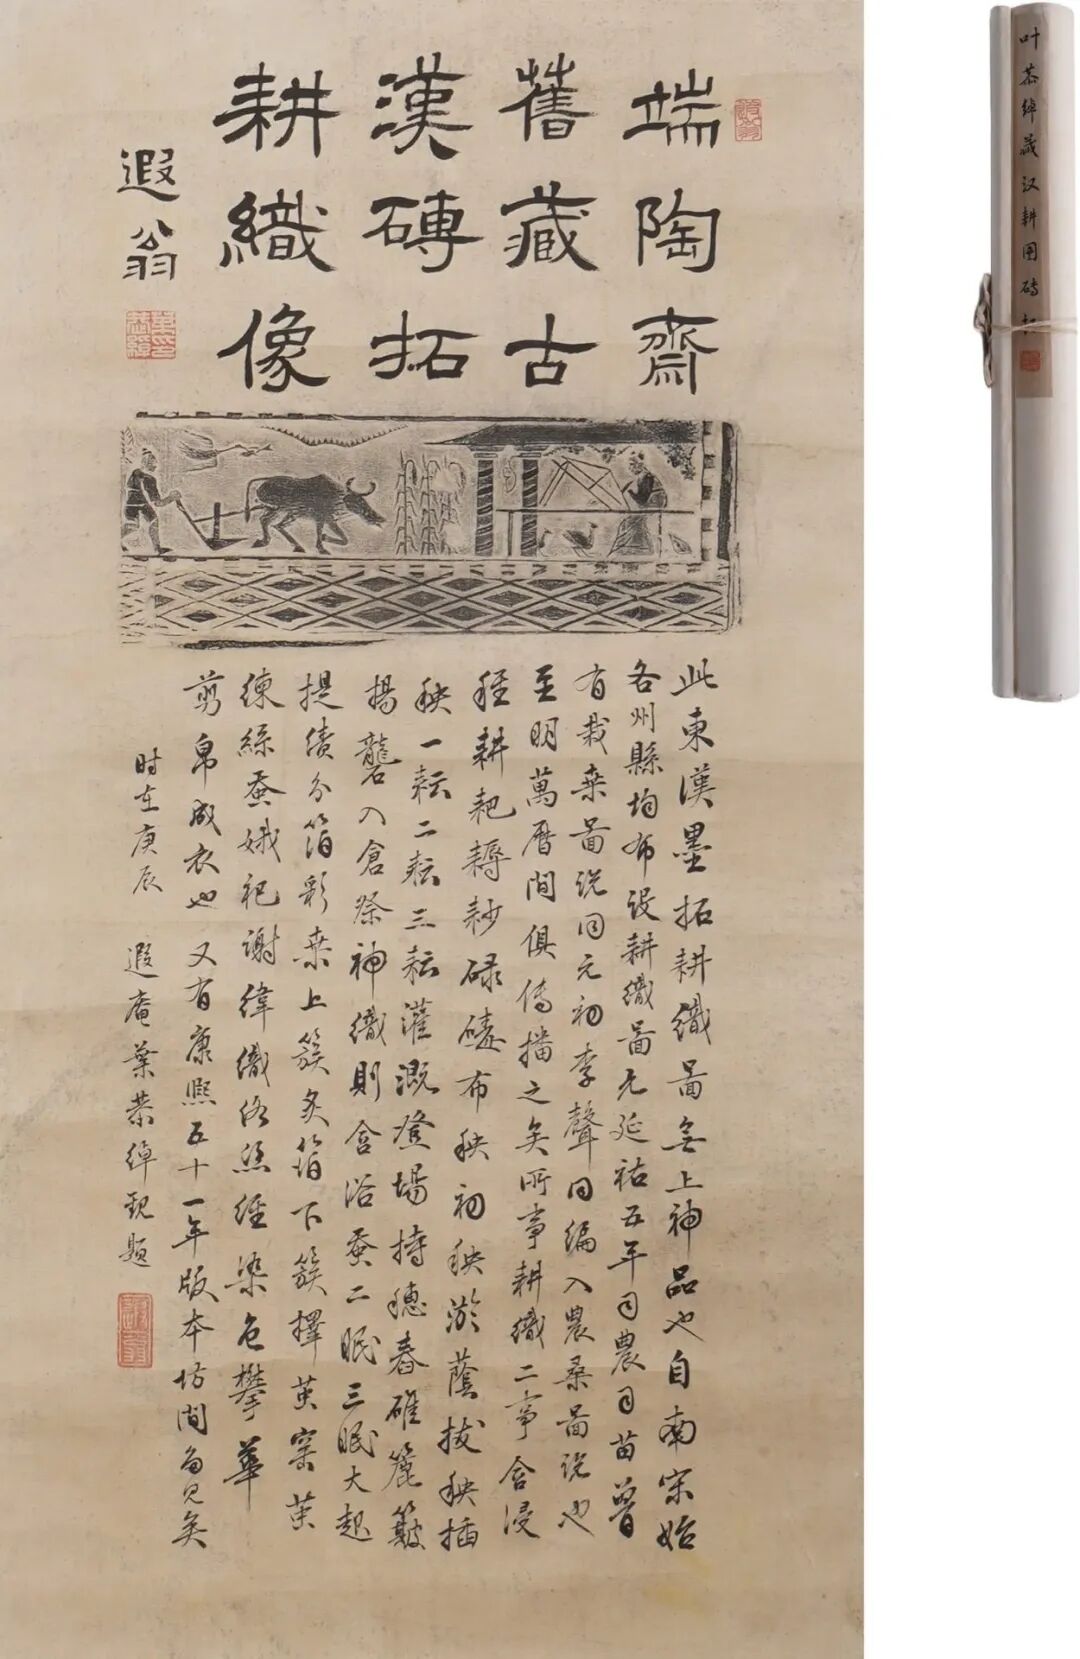 端陶齋
舊藏古
漢磚拓
耕織像
遐翁
此東漢墨拓耕織圖無上神品也自南宋始
各州縣均布設耕織圖元延祐五年司農司苗曾
有栽桑圖說同元初李聲同編入農桑圖說也
至明萬曆間俱傳播之矣所事耕織二事含浸
種耕耙耨耖碌碡布秧初秧淤蔭拔秧插
秧一耘二耘三耘灌溉登場持穗舂碓簏簸
揚礱入倉祭神織則含浴蚕二眠三眠大起
提績分箔彩桑上簇炙箔下簇擇茧窖茧
練絲蚕蛾祀謝緯織絡絲經染色攀華
剪帛成衣也又有康熙五十一年版本坊間多見矣
时在庚辰 遐庵葉恭綽觀題
叶恭绰藏汉耕图砖拓